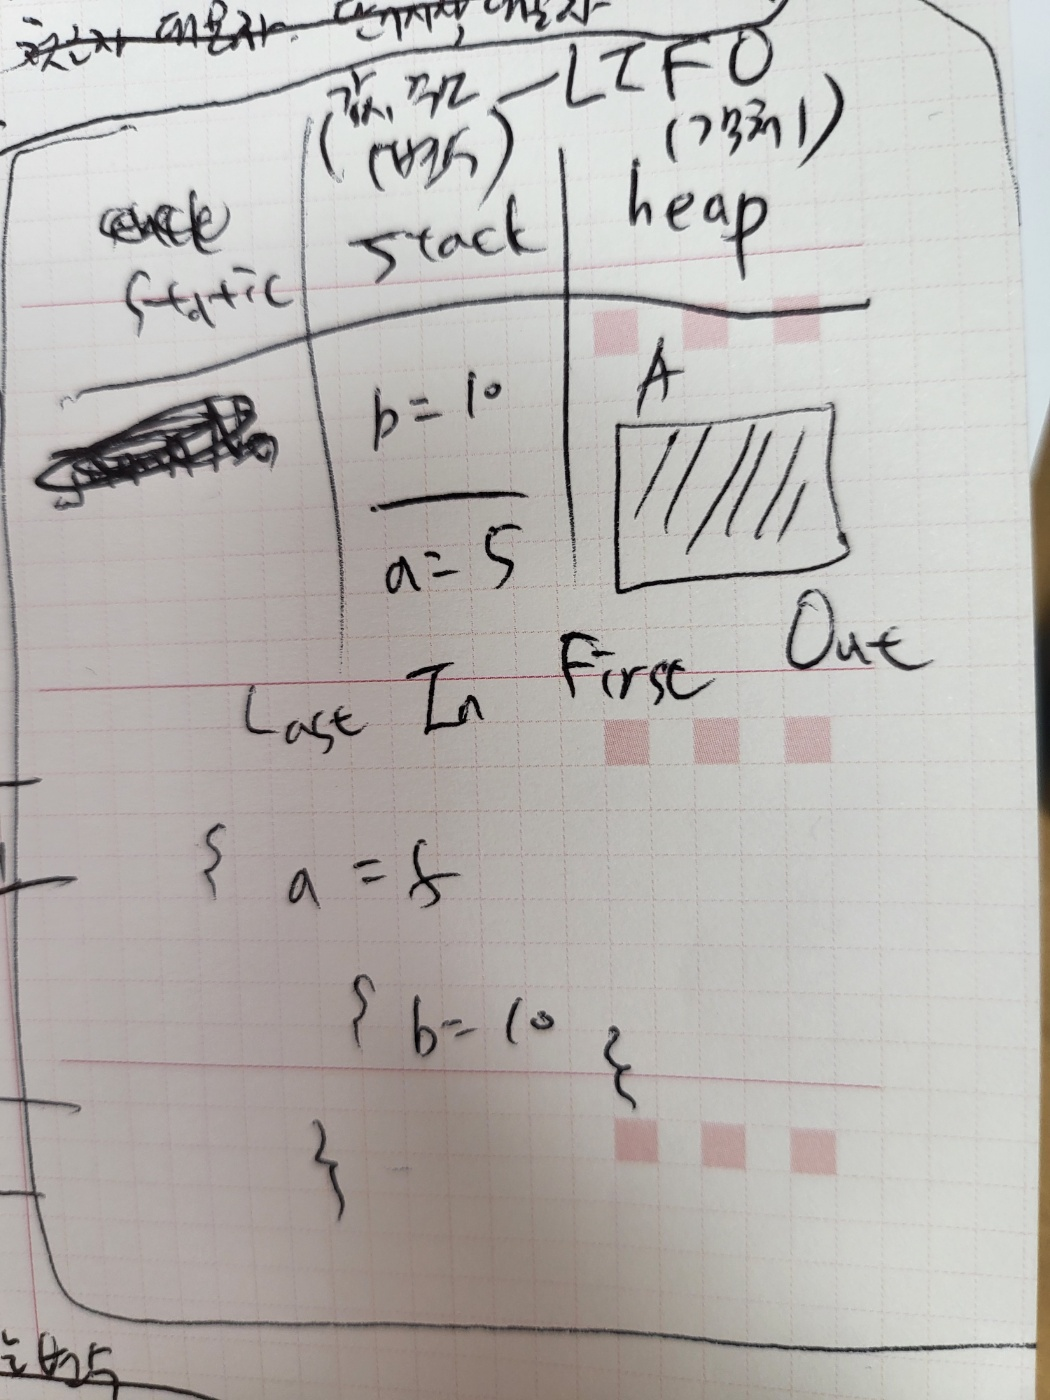 대문자
LIFO
(값, 주소
(변수)
(객체)
static
stack
heap
b = 10
a = 5
A
Last In First Out
{ a = 5
{ b = 10 }
}
변수